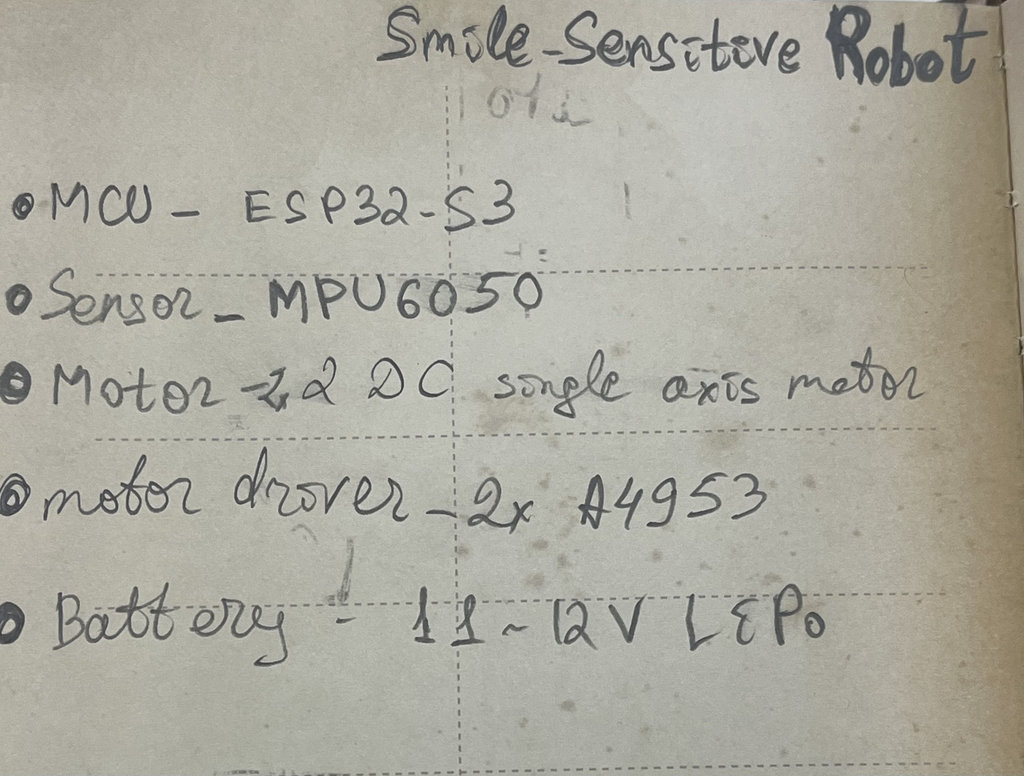 Smile-Sensitive Robot
• MCU - ESP32-S3
• Sensor - MPU6050
• Motor - 2 DC single axis motor
• motor driver - 2x A4953
• Battery - 11~12V LiPo